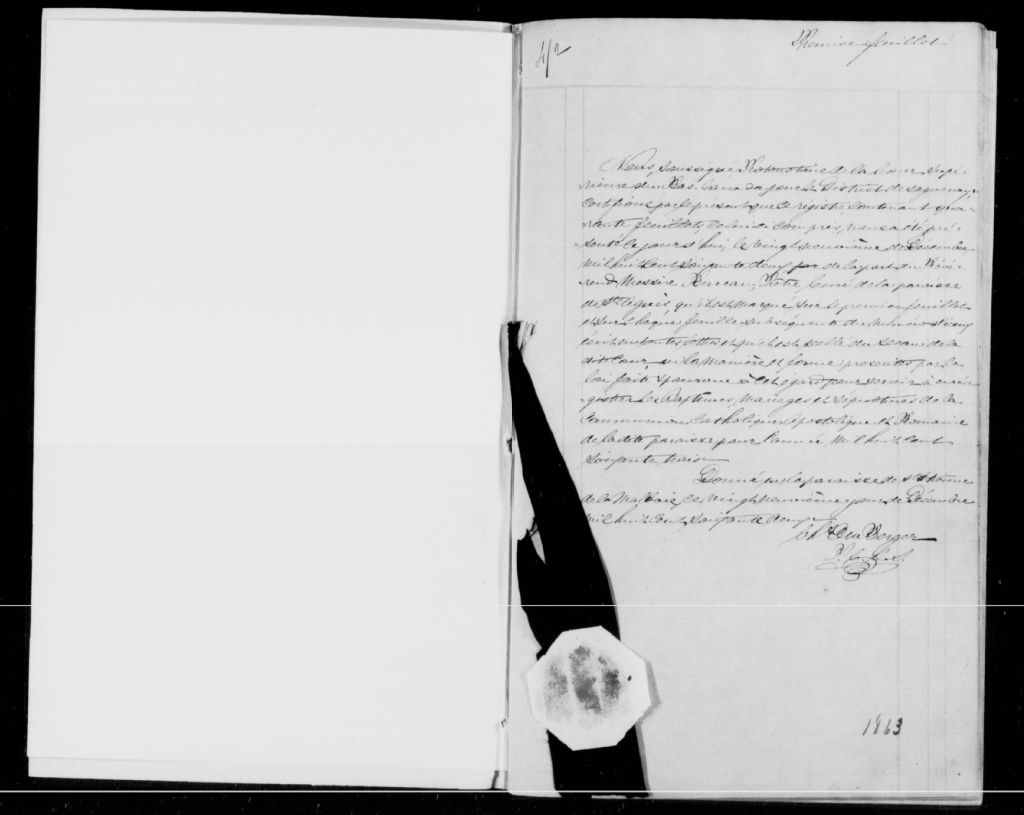 Premier feuillet
Nous, soussigné Protonotaire de la Cour Supé-
rieure du Bas-Canada pour le District de Saguenay,
Certifions par le présent que ce registre contenant qua-
rante feuillets, celui ci compris, nous a été pré-
senté le jour d'hui, le vingt neuvième de Décembre
mil huit cent soixante deux par de la part du Révé-
rend Messire Bureau, Prêtre Curé de la paroisse
de St qu'il est marqué sur le premier feuillet
et sur chaque feuille subséquente du numéro
écrit en toutes lettres et qu'il est scellé du sceau de la
dite Cour, en la manière et forme prescrites par la
loi faite et pourvue à cet égard pour servir à enre-
gistrer les Baptêmes, Mariages et Sépultures de la
Communion Catholique Apostolique et Romaine
de la dite paroisse pour l'année mil huit cent
soixante treis
Donné en la paroisse de St Etienne
de la Malbaie, ce vingt neuvième jour de Décembre
mil huit cent soixante deux
Chs Du Berger
P. C. S. S.
1863